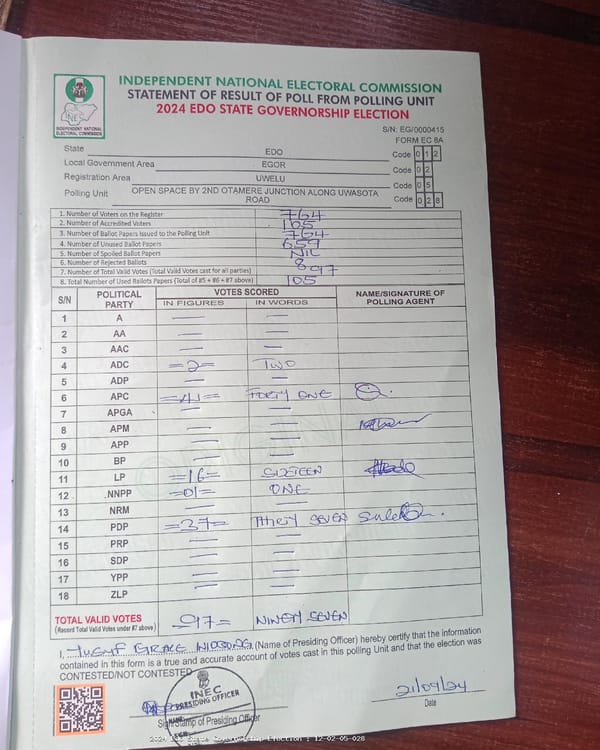 INDEPENDENT NATIONAL ELECTORAL COMMISSION
STATEMENT OF RESULT OF POLL FROM POLLING UNIT
2024 EDO STATE GOVERNORSHIP ELECTION
INEC
INDEPENDENT NATIONAL ELECTORAL COMMISSION
S/N: EG/0000415
FORM EC 8A
State EDO Code 0 1 2
Local Government Area EGOR Code 0 2
Registration Area UWELU Code 0 5
Polling Unit OPEN SPACE BY 2ND OTAMERE JUNCTION ALONG UWASOTA ROAD Code 0 2 8
1. Number of Voters on the Register 764
2. Number of Accredited Voters 105
3. Number of Ballot Papers Issued to the Polling Unit 764
4. Number of Unused Ballot Papers 659
5. Number of Spoiled Ballot Papers NIL
6. Number of Rejected Ballots 8
7. Number of Total Valid Votes (Total Valid Votes cast for all parties) 97
8. Total Number of Used Ballots Papers (Total of #5 + #6 + #7 above) 105
S/N POLITICAL PARTY VOTES SCORED NAME/SIGNATURE OF POLLING AGENT
IN FIGURES IN WORDS
1 A — —
2 AA — —
3 AAC — —
4 ADC =2= TWO
5 ADP — —
6 APC =41= FORTY ONE
7 APGA — —
8 APM — —
9 APP — —
10 BP — —
11 LP =16= SIXTEEN
12 .NNPP =01= ONE
13 NRM — —
14 PDP =37= THIRTY SEVEN
15 PRP — —
16 SDP — —
17 YPP — —
18 ZLP — —
TOTAL VALID VOTES =97= NINETY SEVEN
(Record Total Valid Votes under #7 above)
I, GRACE (Name of Presiding Officer) hereby certify that the information
contained in this form is a true and accurate account of votes cast in this polling Unit and that the election was
CONTESTED/NOT CONTESTED
INEC
PRESIDING OFFICER
Sign/Stamp of Presiding Officer
21/09/24
Date
2024 EDO State Governorship Election : 12-02-05-028